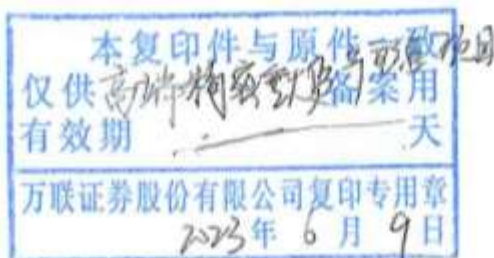 本复印件与原件一致
仅供高端精密备案用
有效期 天
万联证券股份有限公司复印专用章
2023年6月9日